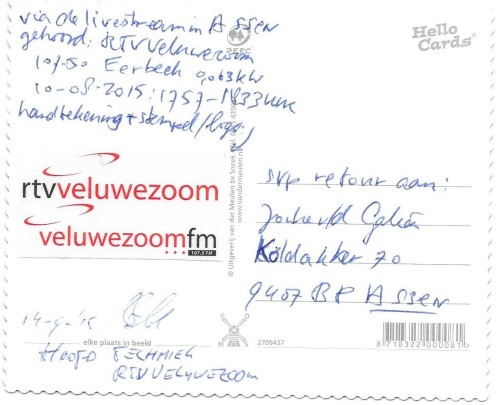 via de livestream in ASSEN
gehoord: RTV Veluwezoom
107.50 Eerbeek 0,063kW
10-08-2015: 1757-1833 uur
handtekening + stempel/logo!
Hello
Cards
PEFC
© Uitgeverij van der Meulen bv Sneek
www.vandermeulen.nl
rtvveluwezoom
veluwezoomfm
107,5 FM
svp retour aan:
Koldakker 70
9407 BP ASSEN
elke plaats in beeld
M S
2709437
8 718322 000081
HOOFD TECHNIEK
RTV VELUWEZOOM